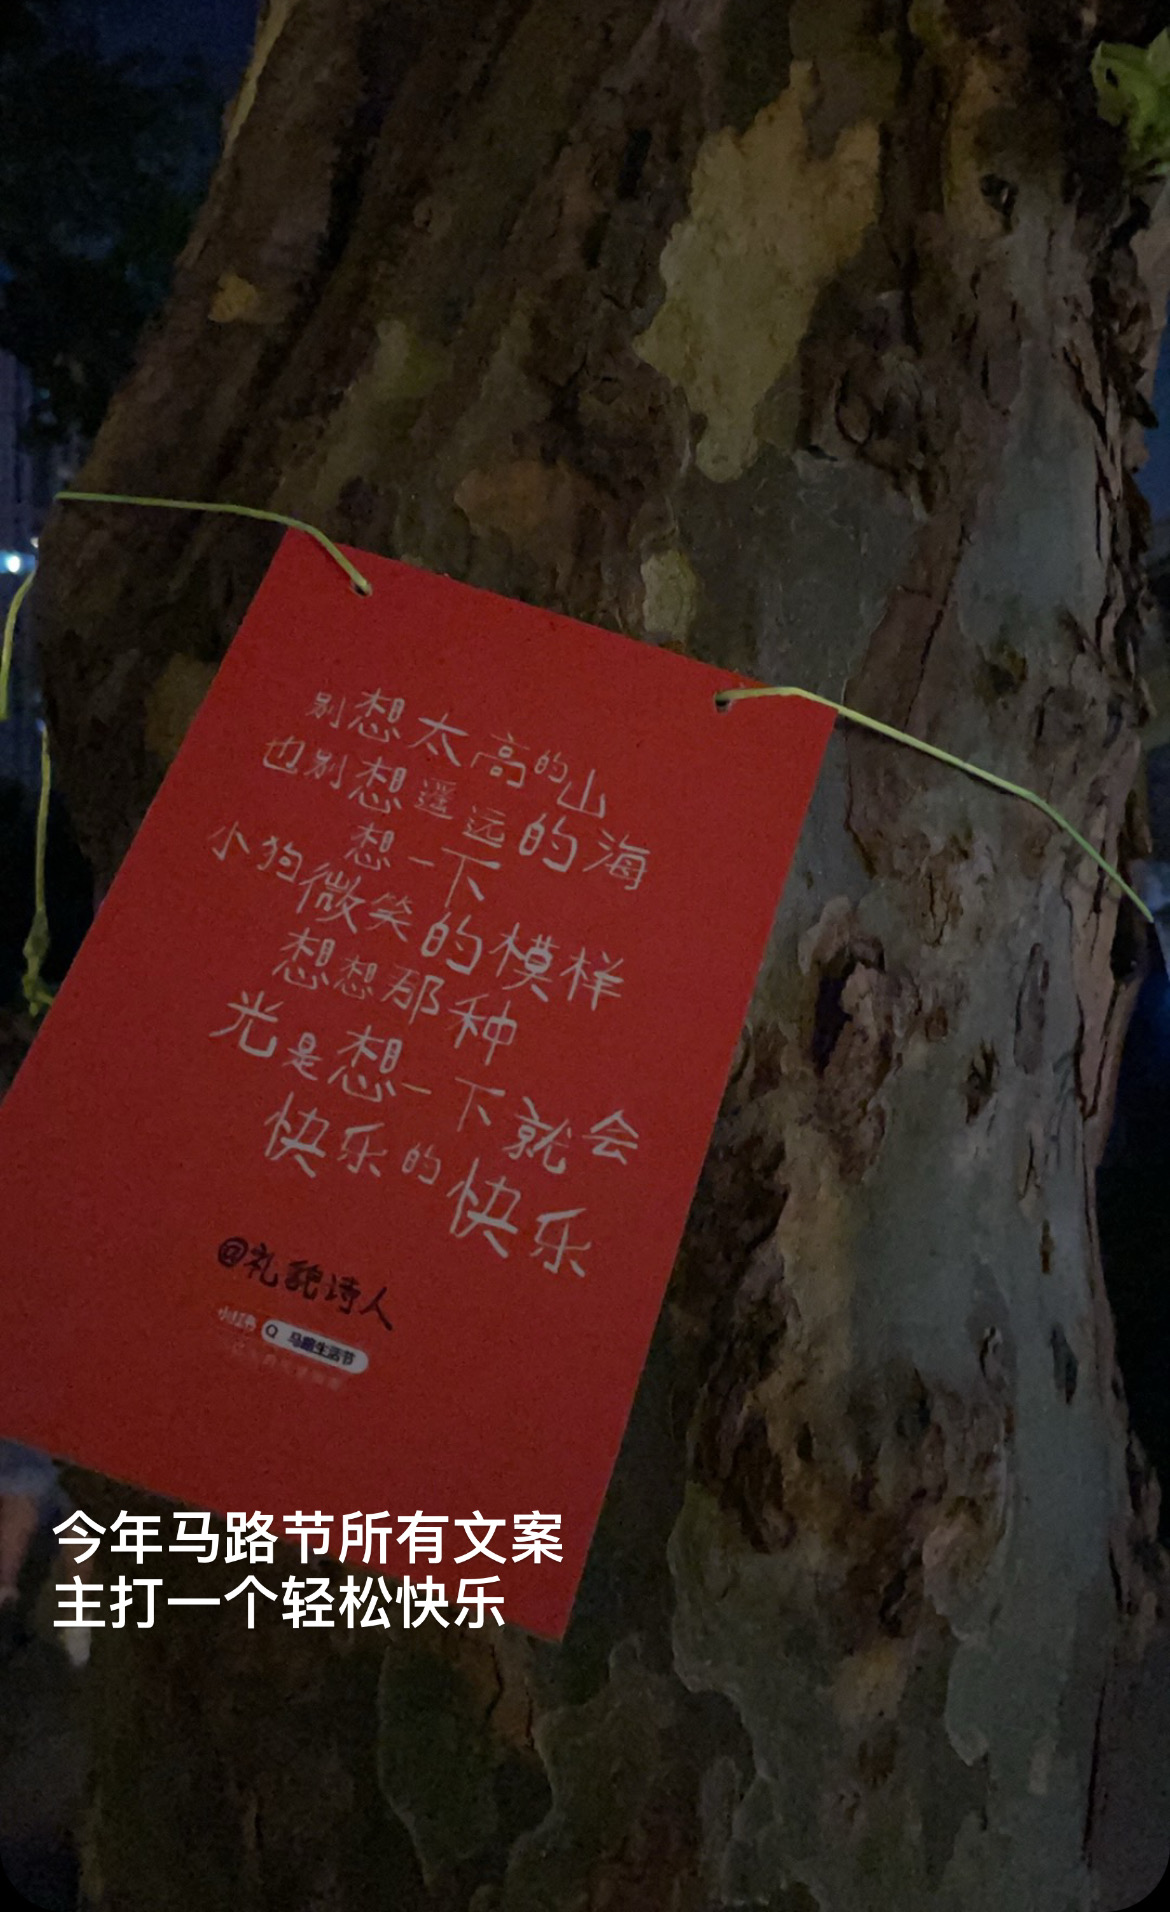 别想太高的山
也别想遥远的海
想一下
小狗微笑的模样
想想那种
光是想一下就会
快乐的快乐
@礼貌诗人
小红书
马路生活节
今年马路节所有文案
主打一个轻松快乐